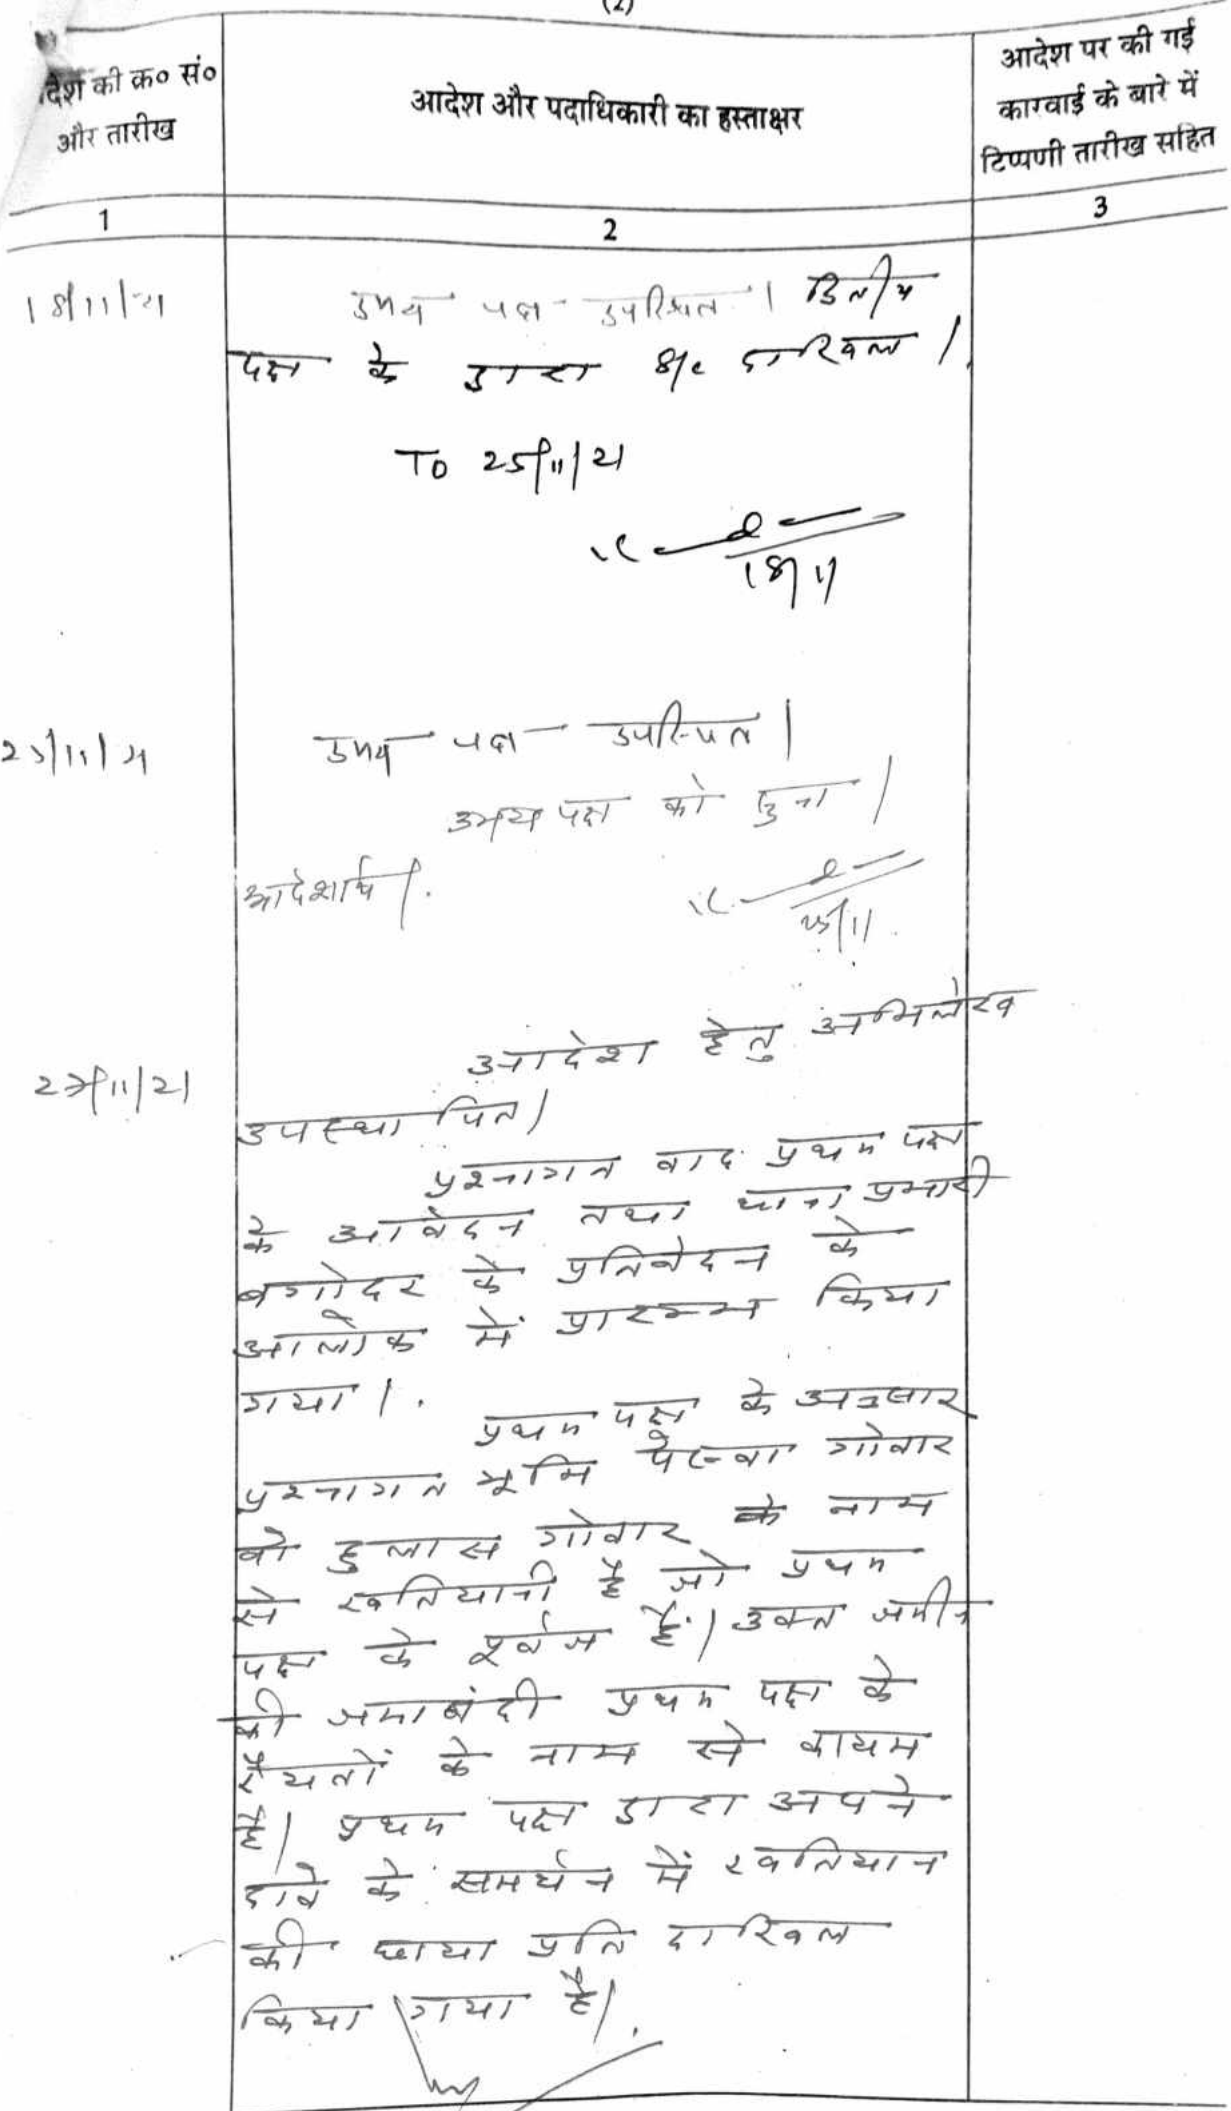 (2)
देश की क्र० सं०
और तारीख
आदेश और पदाधिकारी का हस्ताक्षर
आदेश पर की गई
कारवाई के बारे में
टिप्पणी तारीख सहित
1
2
3
18/11/21
उभय पक्ष उपस्थित । द्वितीय
पक्ष के द्वारा S/c दाखिल ।
To 25/11/21
18/11
25/11/21
उभय पक्ष उपस्थित ।
उभय पक्ष को सुना ।
आदेशार्थ ।
25/11
27/11/21
आदेश हेतु अभिलेख
उपस्थापित ।
प्रश्नागत वाद प्रथम पक्ष
के आवेदन तथा थाना प्रभारी
बगोदर के प्रतिवेदन के
आलोक में प्रारम्भ किया
गया ।
प्रथम पक्ष के अनुसार
प्रश्नागत भूमि गोवार
वो हुलास गोवार के नाम
से खतियानी है जो प्रथम
पक्ष के पूर्वज हैं । उक्त जमीन
की जमाबंदी प्रथम पक्ष के
रैयतों के नाम से कायम
है । प्रथम पक्ष द्वारा अपने
दावे के समर्थन में खतियान
की छाया प्रति दाखिल
किया गया है ।